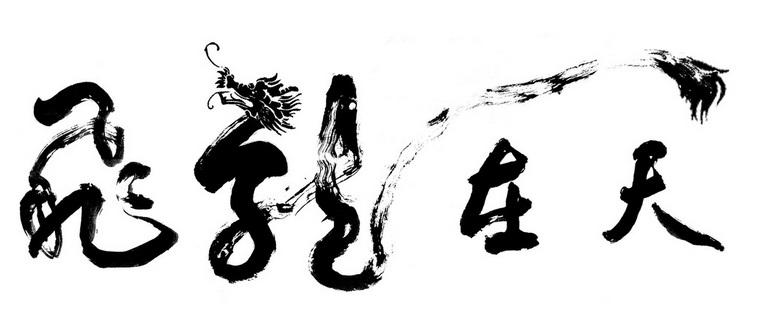 飛龍在天